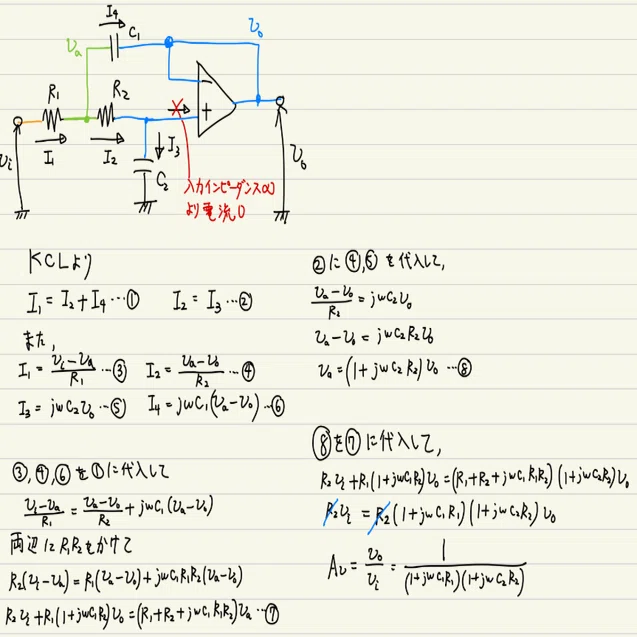 I₄
C₁
v₀
vₐ
R₁
R₂
I₁
I₂
I₃
C₂
vᵢ
v₀
入力インピーダンス∞
より電流0
KCLより
I₁ = I₂ + I₄ …① I₂ = I₃ …②
また,
I₁ = (vᵢ - vₐ)/R₁ …③ I₂ = (vₐ - v₀)/R₂ …④
I₃ = jωC₂v₀ …⑤ I₄ = jωC₁(vₐ - v₀) …⑥
③,④,⑥を①に代入して
(vᵢ - vₐ)/R₁ = (vₐ - v₀)/R₂ + jωC₁(vₐ - v₀)
両辺にR₁R₂をかけて
R₂(vᵢ - vₐ) = R₁(vₐ - v₀) + jωC₁R₁R₂(vₐ - v₀)
R₂vᵢ + R₁(1 + jωC₁R₂)v₀ = (R₁ + R₂ + jωC₁R₁R₂)vₐ …⑦
②に④,⑤を代入して,
(vₐ - v₀)/R₂ = jωC₂v₀
vₐ - v₀ = jωC₂R₂v₀
vₐ = (1 + jωC₂R₂)v₀ …⑧
⑧を⑦に代入して,
R₂vᵢ + R₁(1 + jωC₁R₂)v₀ = (R₁ + R₂ + jωC₁R₁R₂)(1 + jωC₂R₂)v₀
R₂vᵢ = R₂(1 + jωC₁R₁)(1 + jωC₂R₂)v₀
Aᵥ = v₀/vᵢ = 1/((1 + jωC₁R₁)(1 + jωC₂R₂))